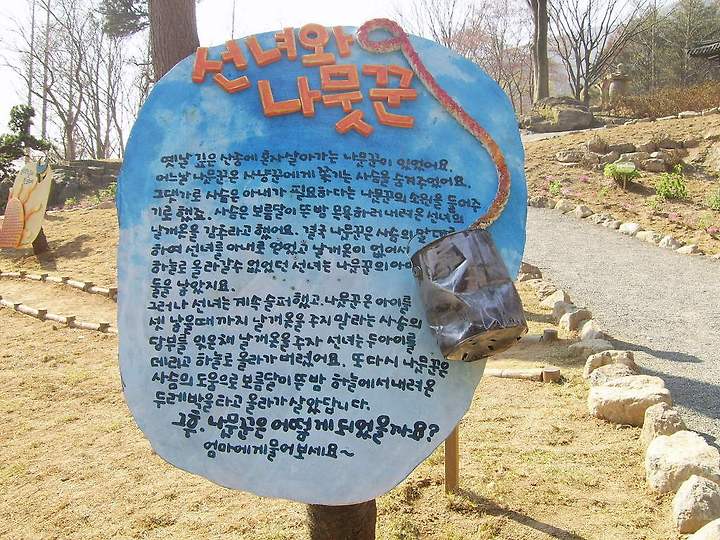 선녀와
나뭇꾼
옛날 깊은 산중에 혼자 살아가는 나뭇꾼이 있었어요.
어느날 나뭇꾼은 사냥꾼에게 쫓기는 사슴을 숨겨주었어요.
그댓가로 사슴은 아내가 필요하다는 나뭇꾼의 소원을 들어주
기로 했죠. 사슴은 보름달이 뜬 밤 목욕하러 내려온 선녀의
날개옷을 감추라고 했어요. 결국 나뭇꾼은 사슴의 말대로
하여 선녀를 아내로 얻었고 날개옷이 없어서
하늘로 올라갈수 없었던 선녀는 나뭇꾼의 아이
들을 낳았지요.
그러나 선녀는 계속 슬퍼했고. 나뭇꾼은 아이를
셋 낳을때까지 날개옷을 주지 말라는 사슴의
당부를 잊은채 날개옷을 주자 선녀는 두아이를
데리고 하늘로 올라가 버렸어요. 또 다시 나뭇꾼은
사슴의 도움으로 보름달이 뜬 밤 하늘에서 내려온
두레박을 타고 올라가 살았답니다.
그후, 나뭇꾼은 어떻게 되었을까요?
엄마에게 물어보세요~